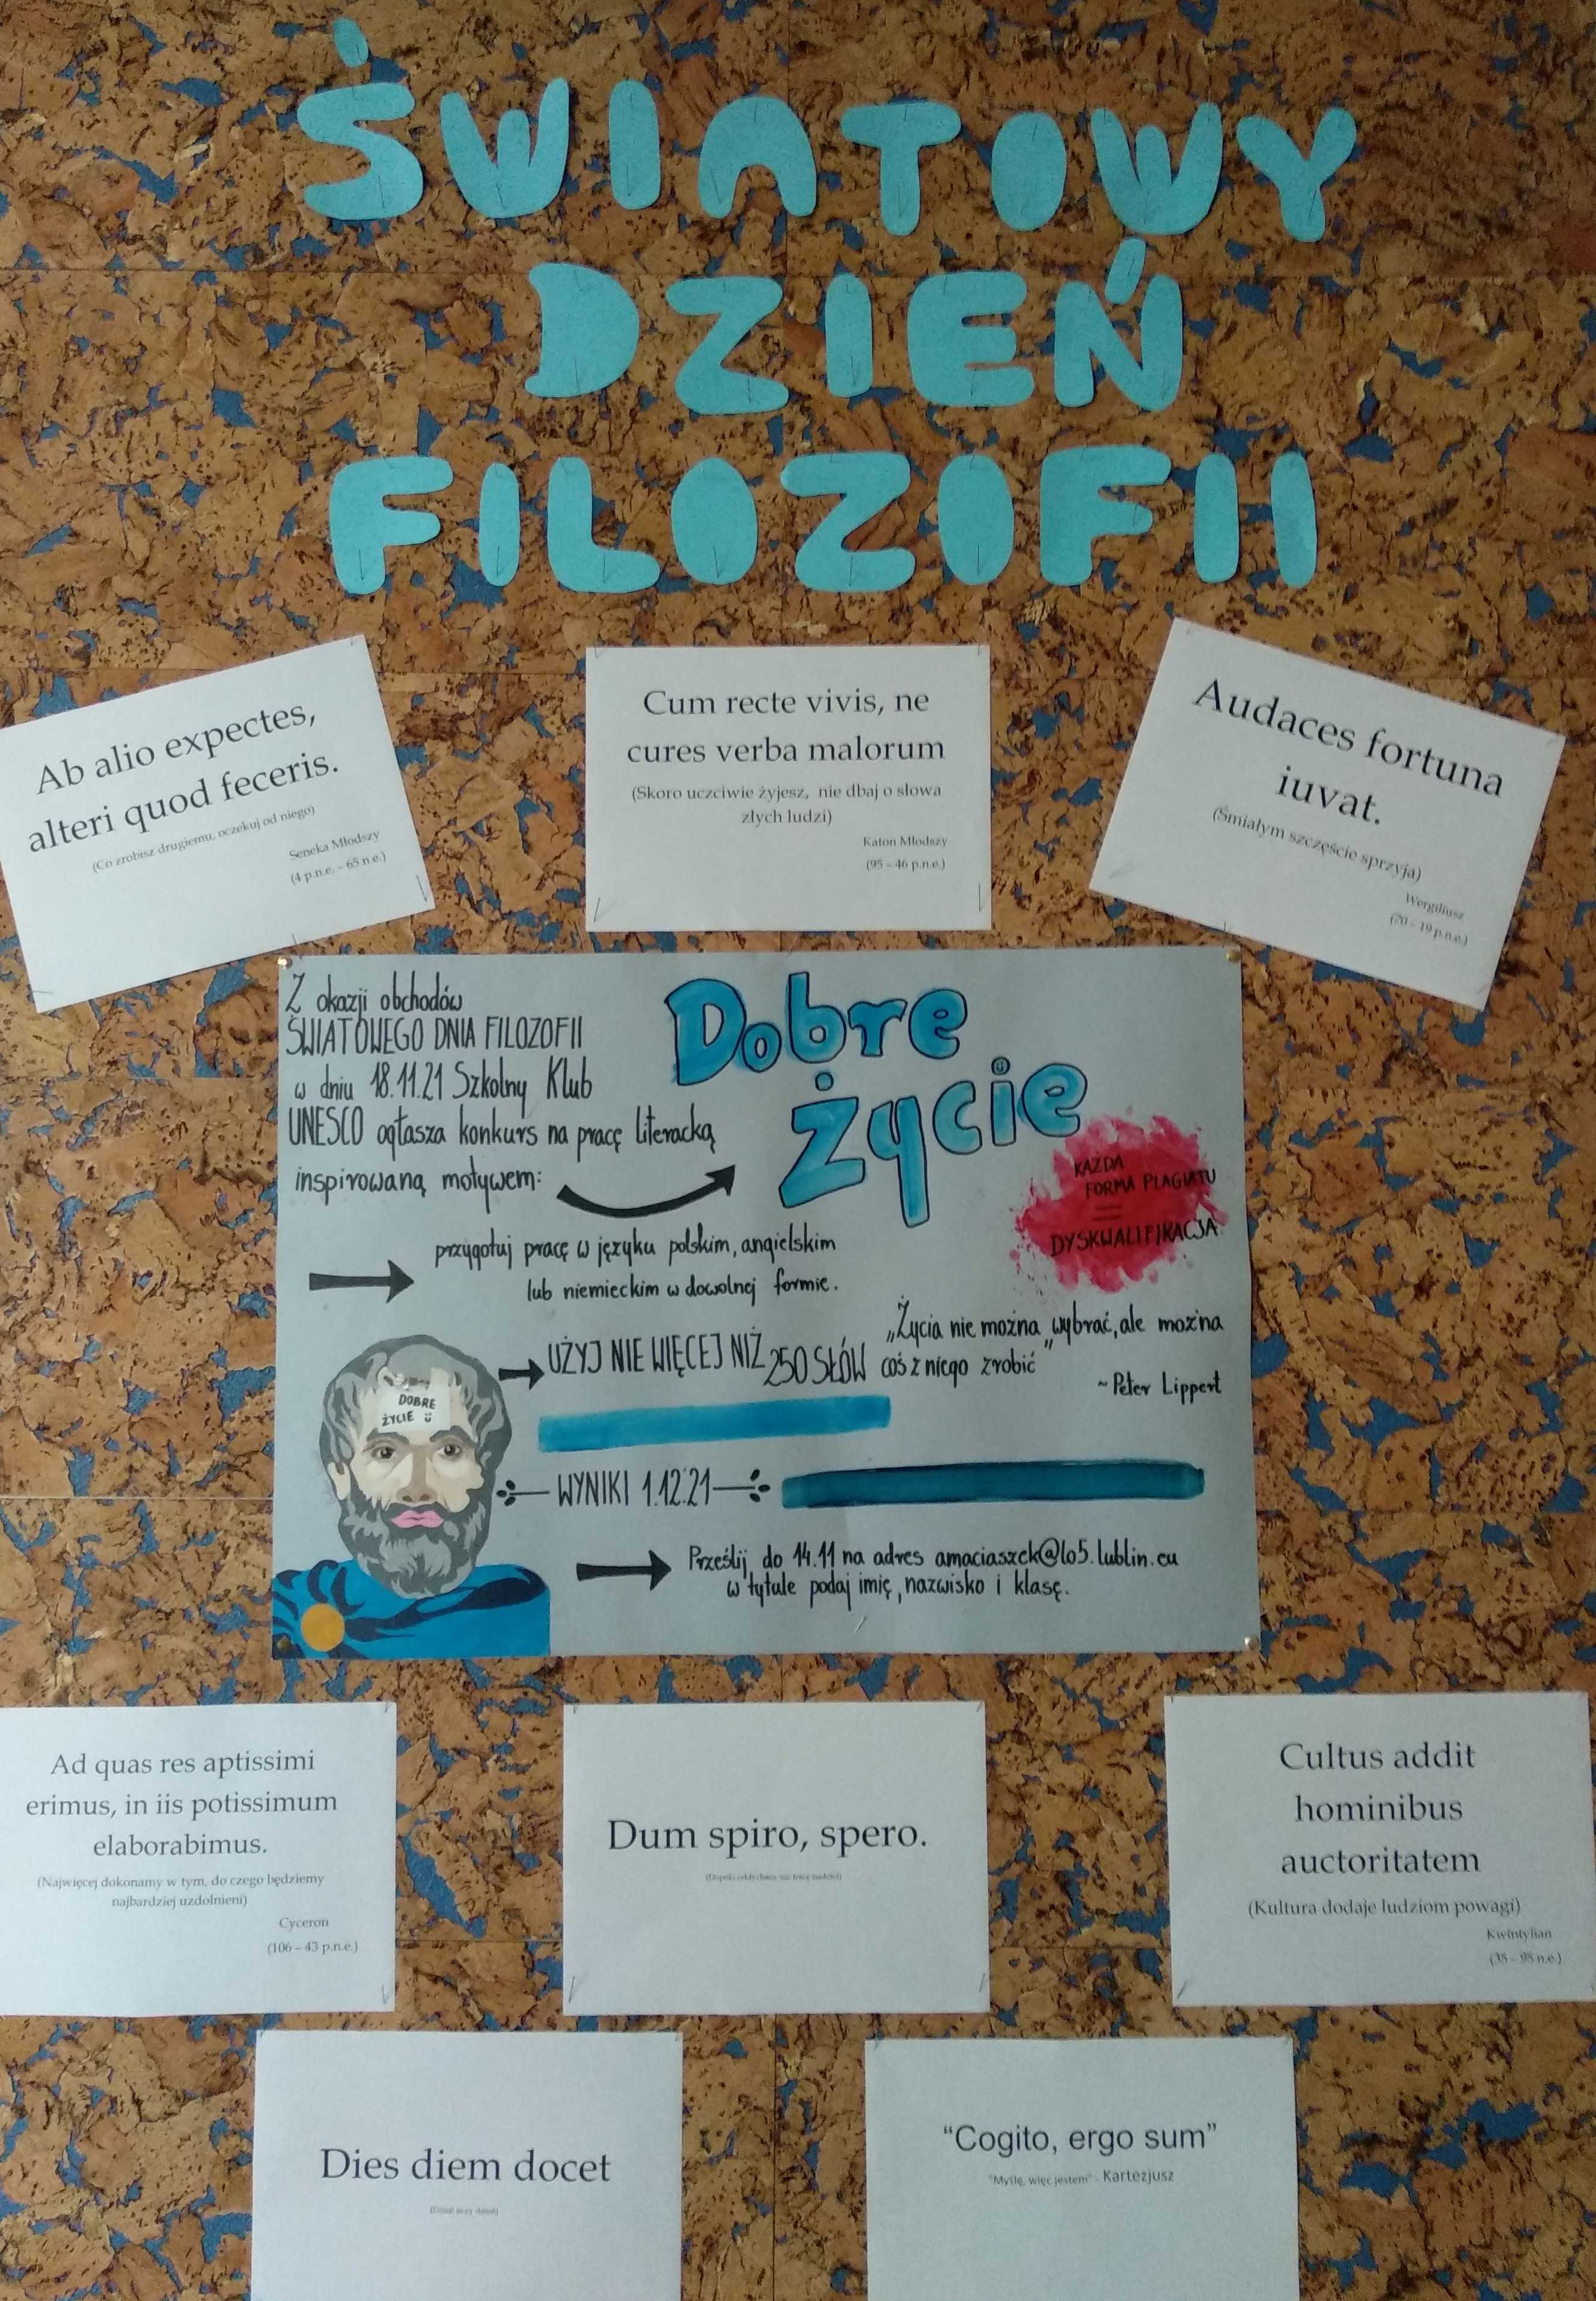 ŚWIATOWY
DZIEŃ
FILOZOFII
Ab alio expectes,
alteri quod feceris.
(Co zrobisz drugiemu, oczekuj od niego)
Seneka Młodszy
(4 p.n.e. – 65 n.e.)
Cum recte vivis, ne
cures verba malorum
(Skoro uczciwie żyjesz, nie dbaj o słowa
złych ludzi)
Katon Młodszy
(95 – 46 p.n.e.)
Audaces fortuna
iuvat.
(Śmiałym szczęście sprzyja)
Wergiliusz
(70 – 19 p.n.e.)
Z okazji obchodów
ŚWIATOWEGO DNIA FILOZOFII
w dniu 18.11.21 Szkolny Klub
UNESCO ogłasza konkurs na pracę literacką
inspirowaną motywem:
Dobre
życie
KAŻDA
FORMA PLAGIATU
=
DYSKWALIFIKACJA
przygotuj pracę w języku polskim, angielskim
lub niemieckim w dowolnej formie.
UŻYJ NIE WIĘCEJ NIŻ 250 SŁÓW
„Życia nie można wybrać, ale można
coś z niego zrobić"
~Peter Lippert
DOBRE
ŻYCIE
WYNIKI 1.12.21
Prześlij do 14.11 na adres amaciaszek@lo5.lublin.eu
w tytule podaj imię, nazwisko i klasę.
Ad quas res aptissimi
erimus, in iis potissimum
elaborabimus.
(Najwięcej dokonamy w tym, do czego będziemy
najbardziej uzdolnieni)
Cyceron
(106 – 43 p.n.e.)
Dum spiro, spero.
(Dopóki oddycham, nie tracę nadziei)
Cultus addit
hominibus
auctoritatem
(Kultura dodaje ludziom powagi)
Kwintylian
(35 – 95 n.e.)
Dies diem docet
(Dzień uczy dzień)
“Cogito, ergo sum”
"Myślę, więc jestem" - Kartezjusz